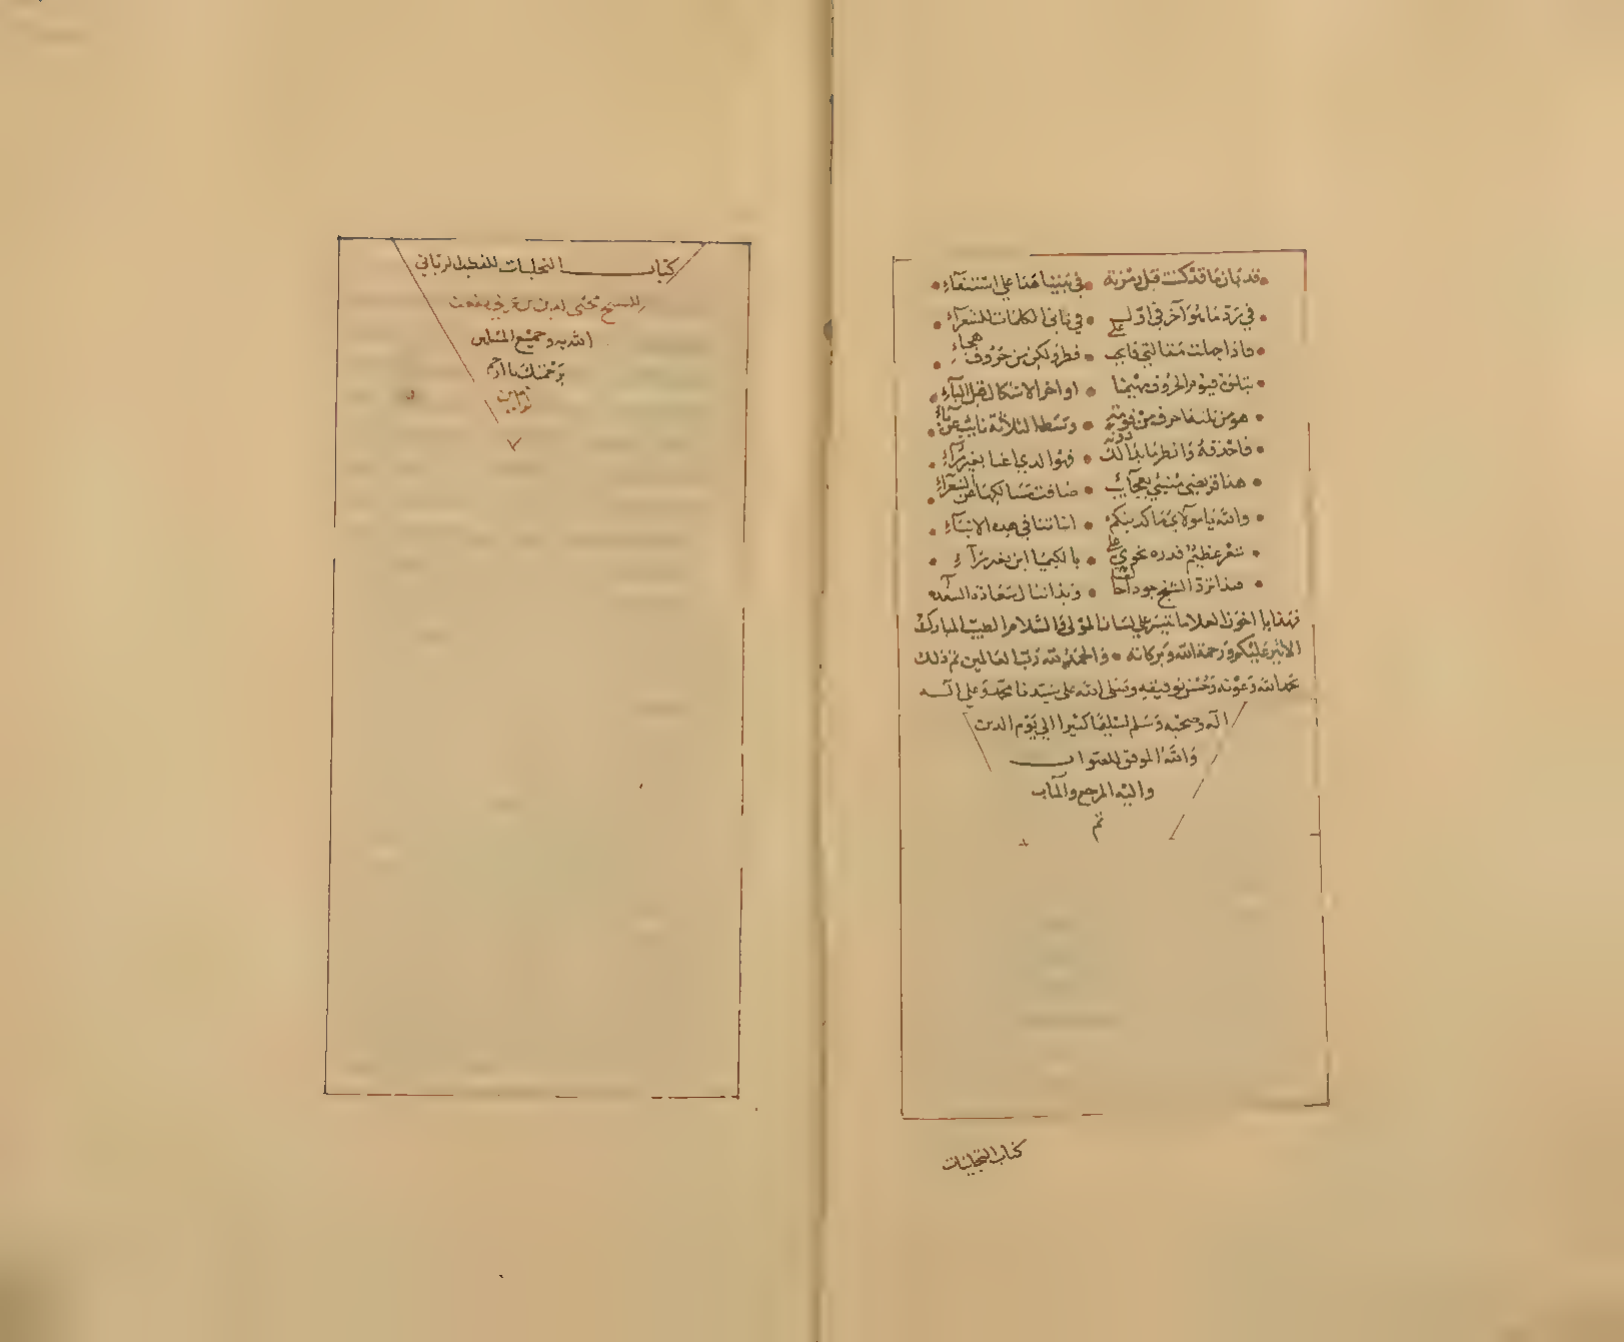 قد بان ما قد كنت قبل رمزته • في بيتنا هذا على استثناء
في رد ما هو آخر في اول • في ثاني الكلمات للشعراء
فاذا جهلت مقالتي فانه • فطرولكن من حروف هجاء
اواخر الاشكال قبل الباء
هو من حرف من قومه • وسط الثلاثة نايب عن تاء
فاحذفه وانظر ما بدا لك دونه • فهو الذي اعنا بغير مراء
هذا قريضي منبئي بعجائب • ضاقت مسالكها عن الشعراء
والله يا مولاي ما كذبنكم • انا تنا في هذه الانباء
ثغر عظيم قدره يحوي على • بالكيميا ابن بغير مرآء
هذا
فهذا يا اخوان العلا ما تيسر على لسان المولى والسلام الطيب المبارك
عليكم ورحمة الله وبركاته • والحمد لله رب العالمين تم ذلك
بحمد الله وعونه وحسن توفيقه وصلى الله على سيدنا محمد وعلى آلـــه
اله وصحبه وسلم تسليما كثيرا الى يوم الدين
والله الموفق للصواب
واليه المرجع والمآب
تم
كتاب التجليات
كتاب التجليات للقطب الرباني
للشيخ محيي الدين بن عربي نفعنا
الله به وجميع المسلمين
برحمتك يا ارحم
آمين